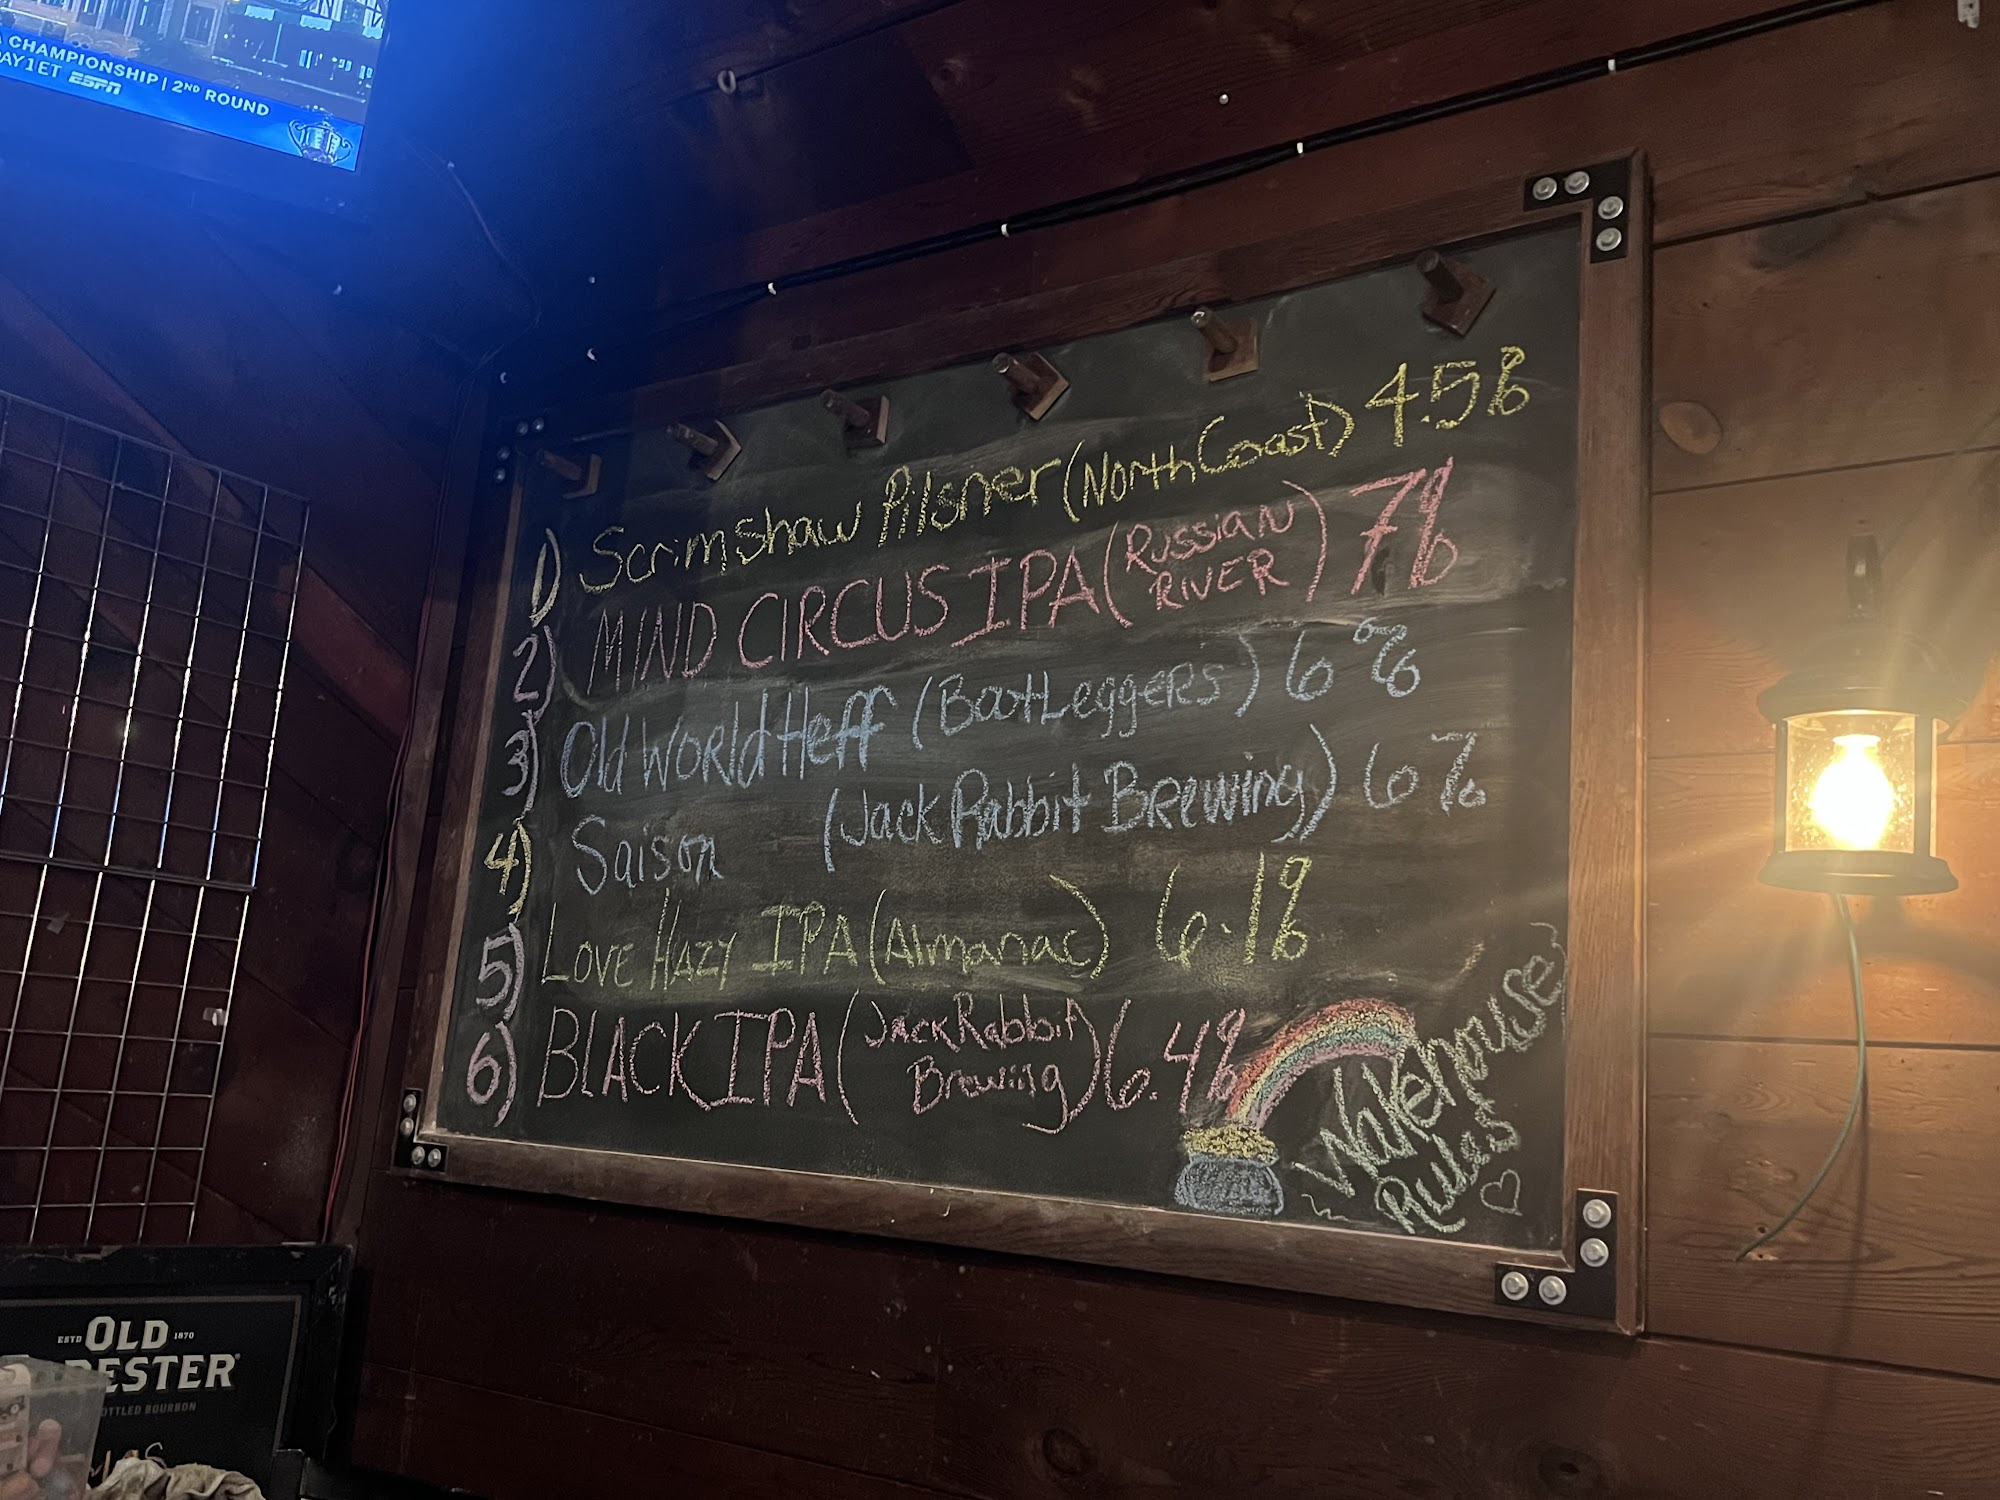 CHAMPIONSHIP | 2ND ROUND
AY 1 ET ESPN
1) Scrimshaw Pilsner (North Coast) 4.5%
2) MIND CIRCUS IPA (RUSSIAN RIVER) 7%
3) Old World Heff (BootLeggers) 6%
4) Saison (Jack Rabbit Brewing) 6%
5) LOVE HAZY IPA (Almanac) 6.1%
6) BLACK IPA (Jack Rabbit Brewing) 6.4%
Wakehouse
Rules
ESTD OLD 1870
ESTER
OTTLED BOURBON